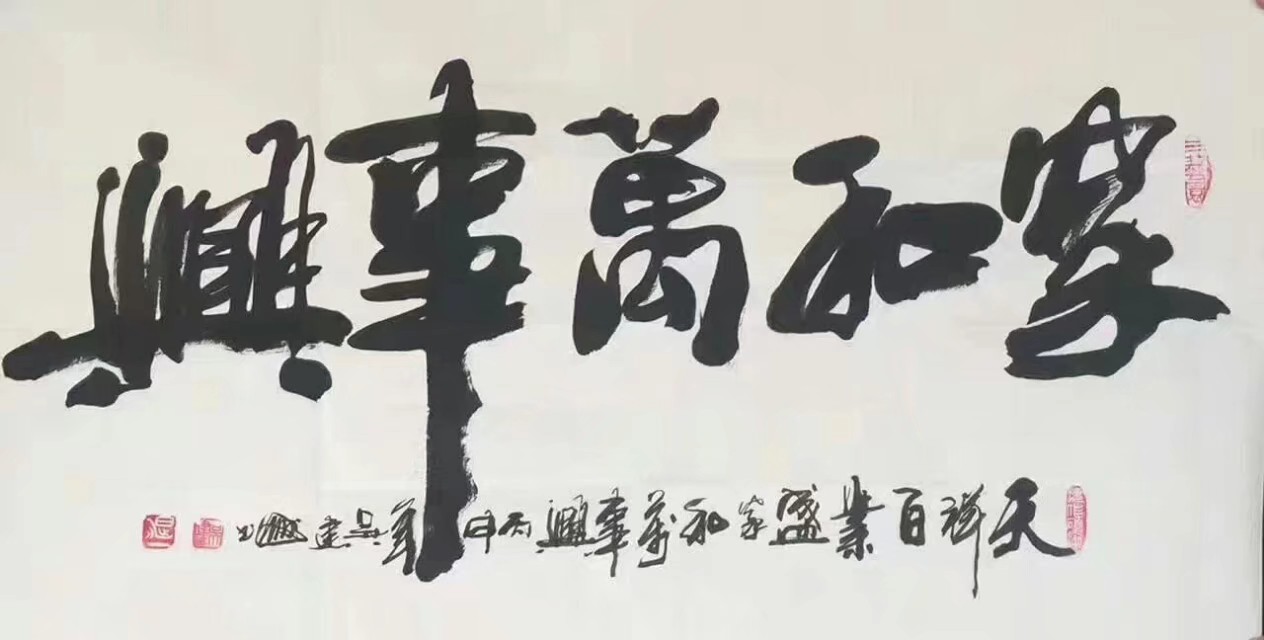 家和萬事興
天祥百業盛家和萬事興丙申年吳建興書